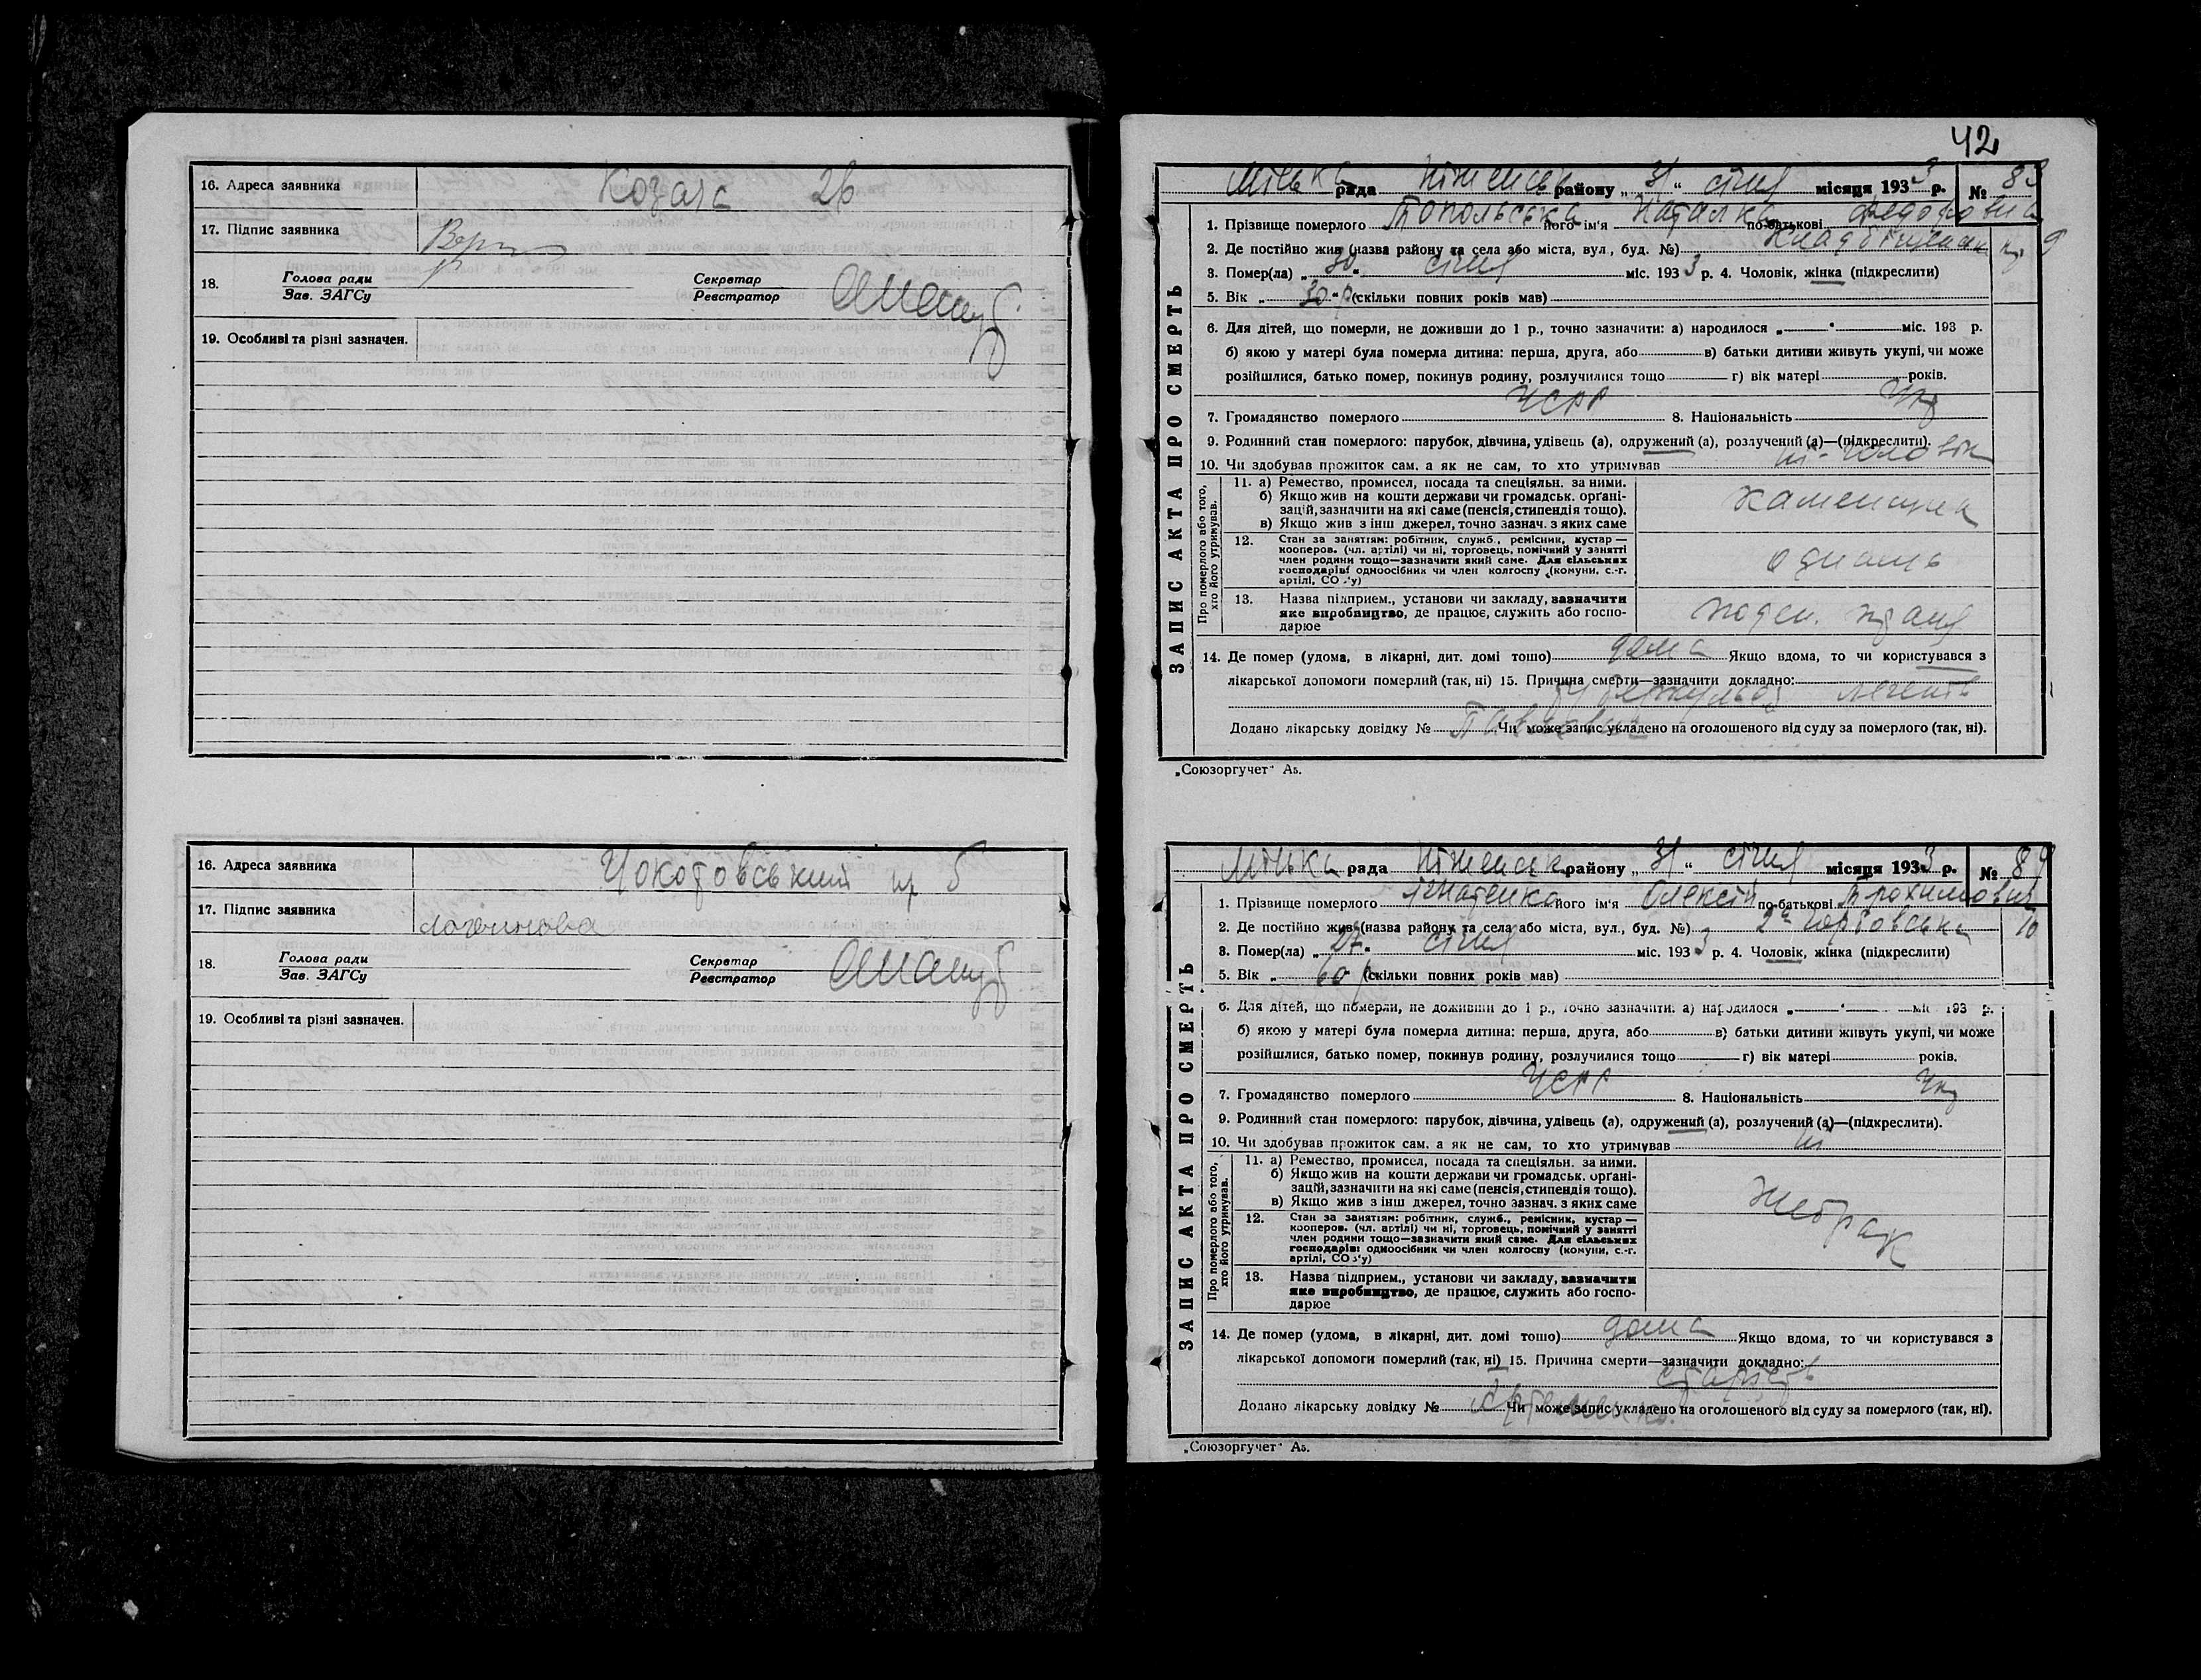 16. Адреса заявника Козача 26
17. Підпис заявника
18. Голова ради Секретар
Зав. ЗАГСу Реєстратор
19. Особливі та різні зазначен.
16. Адреса заявника
17. Підпис заявника Логвинова
18. Голова ради Секретар
Зав. ЗАГСу Реєстратор
19. Особливі та різні зазначен.
42
ЗАПИС АКТА ПРО СМЕРТЬ
Міська рада Ніженськ району „31“ січня місяця 1933 р. № 83
1. Прізвище померлого Топольська його ім'я Наталка по-батькові Федоровна
2. Де постійно жив (назва району та села або міста, вул., буд. №) 9
3. Помер(ла) „30“ січня міс. 1933 р. 4. Чоловік, жінка (підкреслити)
5. Вік „30“ р (скільки повних років мав)
6. Для дітей, що померли, не доживши до 1 р., точно зазначити: а) народилося „ “ міс. 193 р.
б) якою у матері була померла дитина: перша, друга, або в) батьки дитини живуть укупі, чи може
розійшлися, батько помер, покинув родину, розлучилися тощо г) вік матері років.
7. Громадянство померлого УСРР 8. Національність Укр
9. Родинний стан померлого: парубок, дівчина, удівець (а), одружений (а), розлучений (а)—(підкреслити).
10. Чи здобував прожиток сам, а як не сам, то хто утримував ні - чоловік
Про померлого або того, хто його утримував.
11. а) Ремество, промисел, посада та спеціяльн. за ними.
б) Якщо жив на кошти держави чи громадськ. органі-
зацій, зазначити на які саме (пенсія, стипендія тощо).
в) Якщо жив з інш джерел, точно зазнач. з яких саме
каменщик
12. Стан за заняттям: робітник, служб., ремісник, кустар —
кооперов. (чл. артілі) чи ні, торговець, помічний у занятті
член родини тощо—зазначити який саме. Для сільських
господарів: одноосібник чи член колгоспу (комуни, с.-г.
артілі, СОЗ'у)
13. Назва підприєм., установи чи закладу, зазначити
яке виробництво, де працює, служить або госпо-
дарює
поден. праця
14. Де помер (удома, в лікарні, дит. домі тощо) дома Якщо вдома, то чи користувався з
лікарської допомоги померлий (так, ні) 15. Причина смерти—зазначити докладно:
туберкульоз легенів
Додано лікарську довідку № Чи може запис укладено на оголошеного від суду за померлого (так, ні).
„Союзоргучет“ А5.
ЗАПИС АКТА ПРО СМЕРТЬ
Міська рада Ніженськ району „31“ січня місяця 1933 р. № 84
1. Прізвище померлого Ігнатенко його ім'я Олексій по-батькові Трохимович
2. Де постійно жив (назва району та села або міста, вул., буд. №) 10
3. Помер(ла) „27“ січня міс. 1933 р. 4. Чоловік, жінка (підкреслити)
5. Вік „60 р (скільки повних років мав)
6. Для дітей, що померли, не доживши до 1 р., точно зазначити: а) народилося „ “ міс 193 р.
б) якою у матері була померла дитина: перша, друга, або в) батьки дитини живуть укупі, чи може
розійшлися, батько помер, покинув родину, розлучилися тощо г) вік матері років.
7. Громадянство померлого УСРР 8. Національність Укр
9. Родинний стан померлого: парубок, дівчина, удівець (а), одружений (а), розлучений (а)—(підкреслити).
10. Чи здобував прожиток сам, а як не сам, то хто утримував ні
Про померлого або того, хто його утримував.
11. а) Ремество, промисел, посада та спеціяльн. за ними.
б) Якщо жив на кошти держави чи громадськ. органі-
зацій, зазначити на які саме (пенсія, стипендія тощо).
в) Якщо жив з інш джерел, точно зазнач. з яких саме
жебрак
12. Стан за заняттям: робітник, служб., ремісник, кустар —
кооперов. (чл. артілі) чи ні, торговець, помічний у занятті
член родини тощо—зазначити який саме. Для сільських
господарів: одноосібник чи член колгоспу (комуни, с.-г.
артілі, СОЗ'у)
13. Назва підприєм., установи чи закладу, зазначити
яке виробництво, де працює, служить або госпо-
дарює
14. Де помер (удома, в лікарні, дит. домі тощо) дома Якщо вдома, то чи користувався з
лікарської допомоги померлий (так, ні) 15. Причина смерти—зазначити докладно:
старість
Додано лікарську довідку № Чи може запис укладено на оголошеного від суду за померлого (так, ні).
„Союзоргучет“ А5.